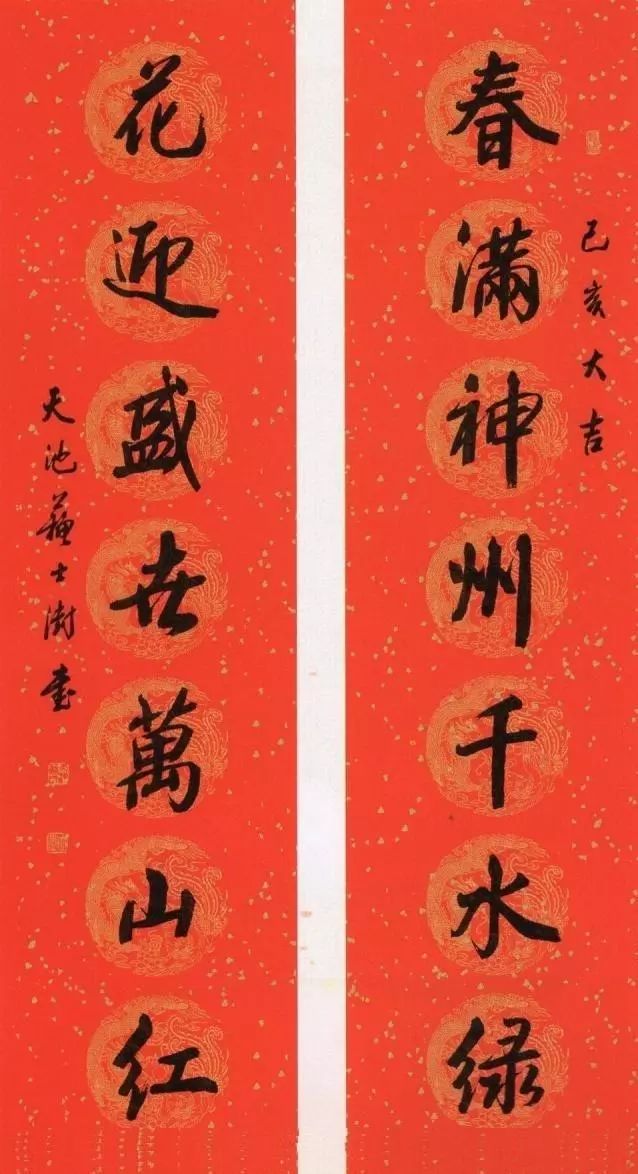 己亥大吉
春满神州千水绿
花迎盛世萬山红
天池蘇士澍書